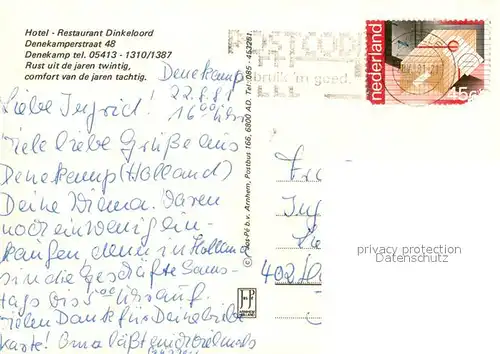 Hotel - Restaurant Dinkeloord
Denekamperstraat 48
Denekamp tel. 05413 - 1310/1387
Rust uit de jaren twintig,
comfort van de jaren tachtig.
POSTCODE
bruik 'm goed.
nederland
45c
Denekamp
22.8.81
16.00 Uhr
Liebe Ingrid!
Viele liebe Grüße aus
Denekamp (Holland)
Deine Wilma. Waren
noch ein wenig ein-
kaufen, denn in Holland
sind die Geschäfte Sams-
tags bis 00 Uhr auf.
Vielen Dank für Deine liebe
Karte! Oma läßt
© Jos-Pé b.v. Arnhem, Postbus 166, 6800 AD. Tel. 085 - 453261.
JosPé
ARNHEM
Fr
In
402
privacy protection
Datenschutz